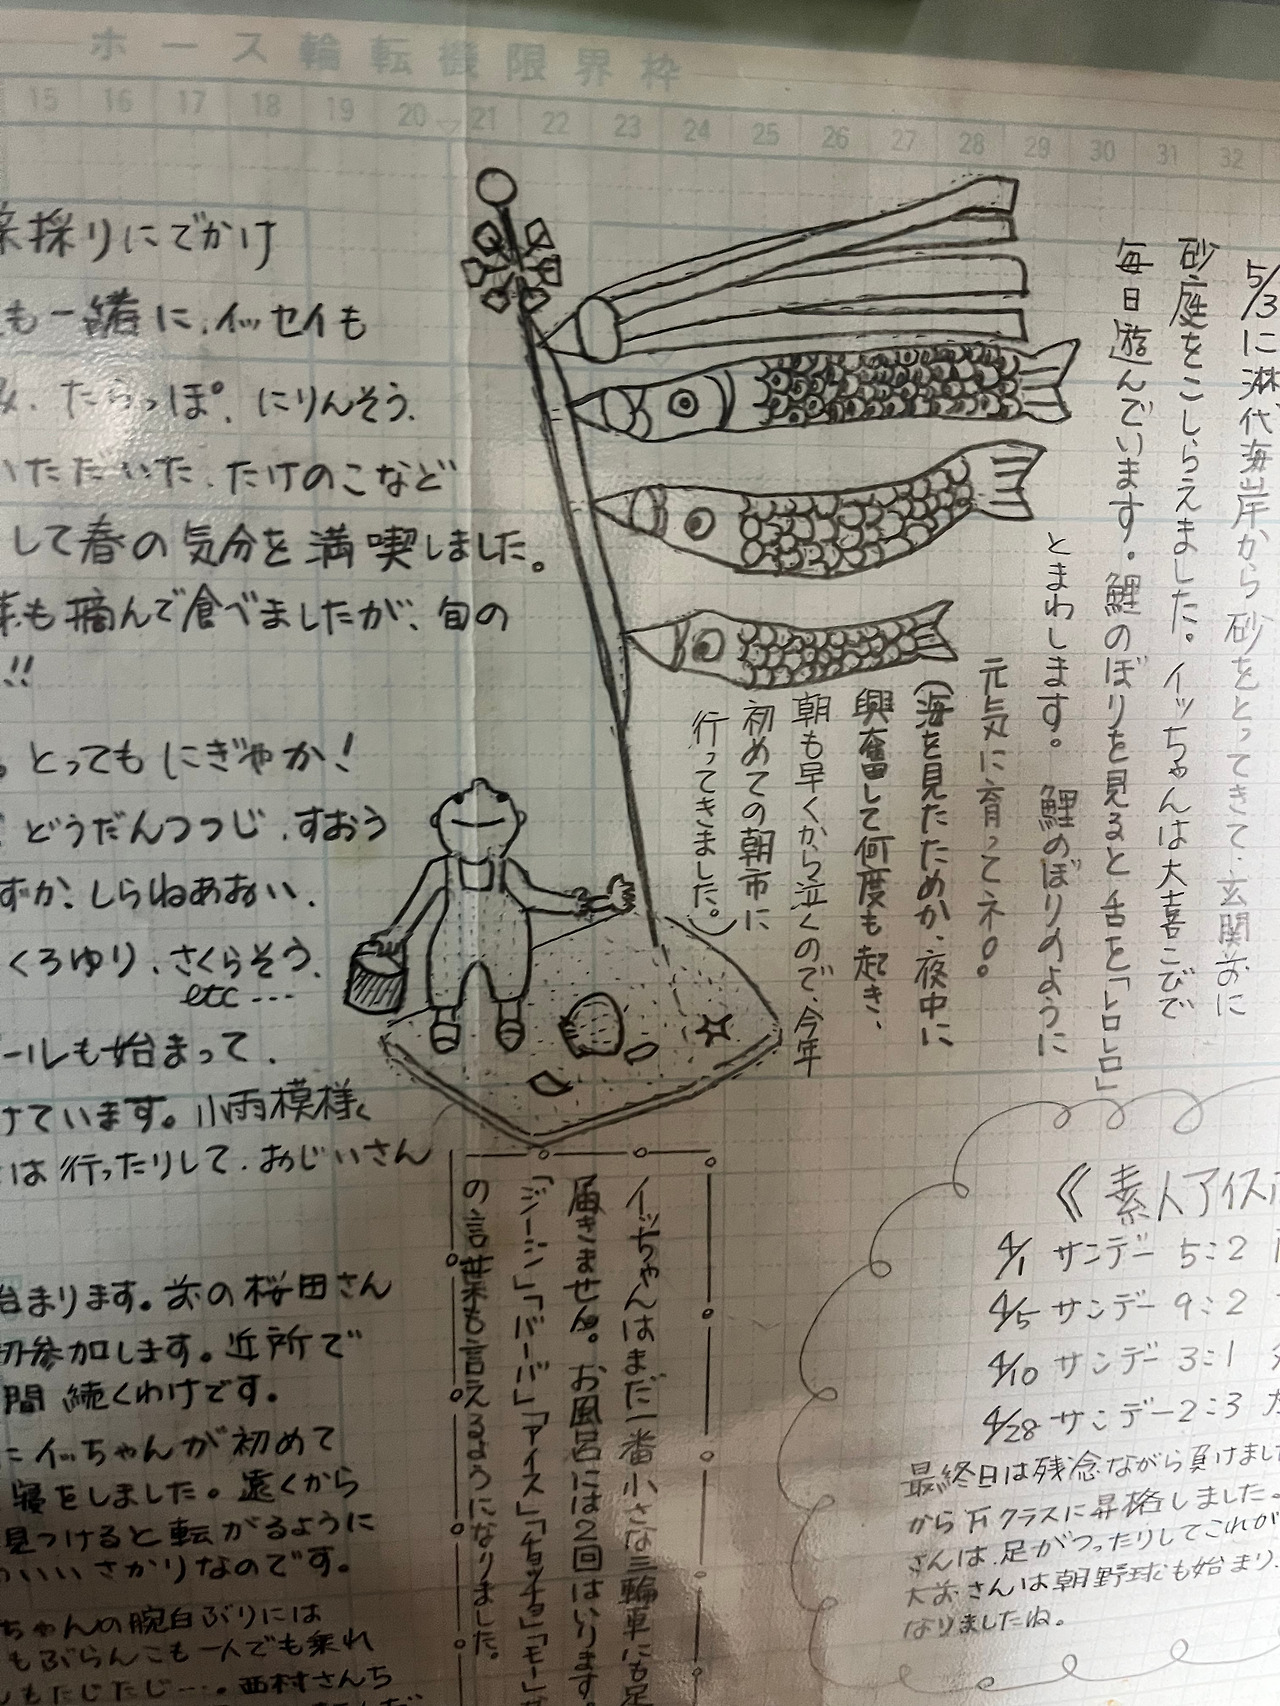 ホース輪転機限界枠
15 16 17 18 19 20 21 22 23 24 25 26 27 28 29 30 31 32
菜採りにでかけ
も一緒に、イッセイも
み、たらっぽ、にりんそう、
いただいた、たけのこなど
して春の気分を満喫しました。
も摘んで食べましたが、旬の
!!
。とってもにぎやか!
どうだんつつじ、すおう
ずか、しらねあおい、
くろゆり、さくらそう、
etc…
ールも始まって、
けています。小雨模様、
は行ったりして、おじいさん
始まります。前の桜田さん
初参加します。近所で
間続くわけです。
にイッちゃんが初めて
寝をしました。遠くから
見つけると転がるように
いいさかりなのです。
ちゃんの腕白ぶりには
もぶらんこも一人でも乗れ
もたじたじ…。西村さんち
5/3に淋代海岸から砂をとってきて、玄関前に
砂庭をこしらえました。イッちゃんは大喜びで
毎日遊んでいます。鯉のぼりを見ると舌を「トロトロ」
とまわします。鯉のぼりのように
元気に育ってネ。
(海を見たためか、夜中に
興奮して何度も起き、
朝も早くから泣くので、今年
初めての朝市に
行ってきました。)
イッちゃんはまだ一番小さな三輪車にも足
届きません。お風呂には2回はいります。
「ジージ」「バーバ」「アイス」「チョッチョ」「モー」
の言葉も言えるようになりました。
《素人アイスホ
4/1 サンデー 5:2
4/5 サンデー 9:2
4/10 サンデー 3:1
4/28 サンデー 2:3
最終日は残念ながら負けまし
からBクラスに昇格しました。
さんは、足がつったりしてこれが
大さんは朝野球も始まり、
なりましたね。